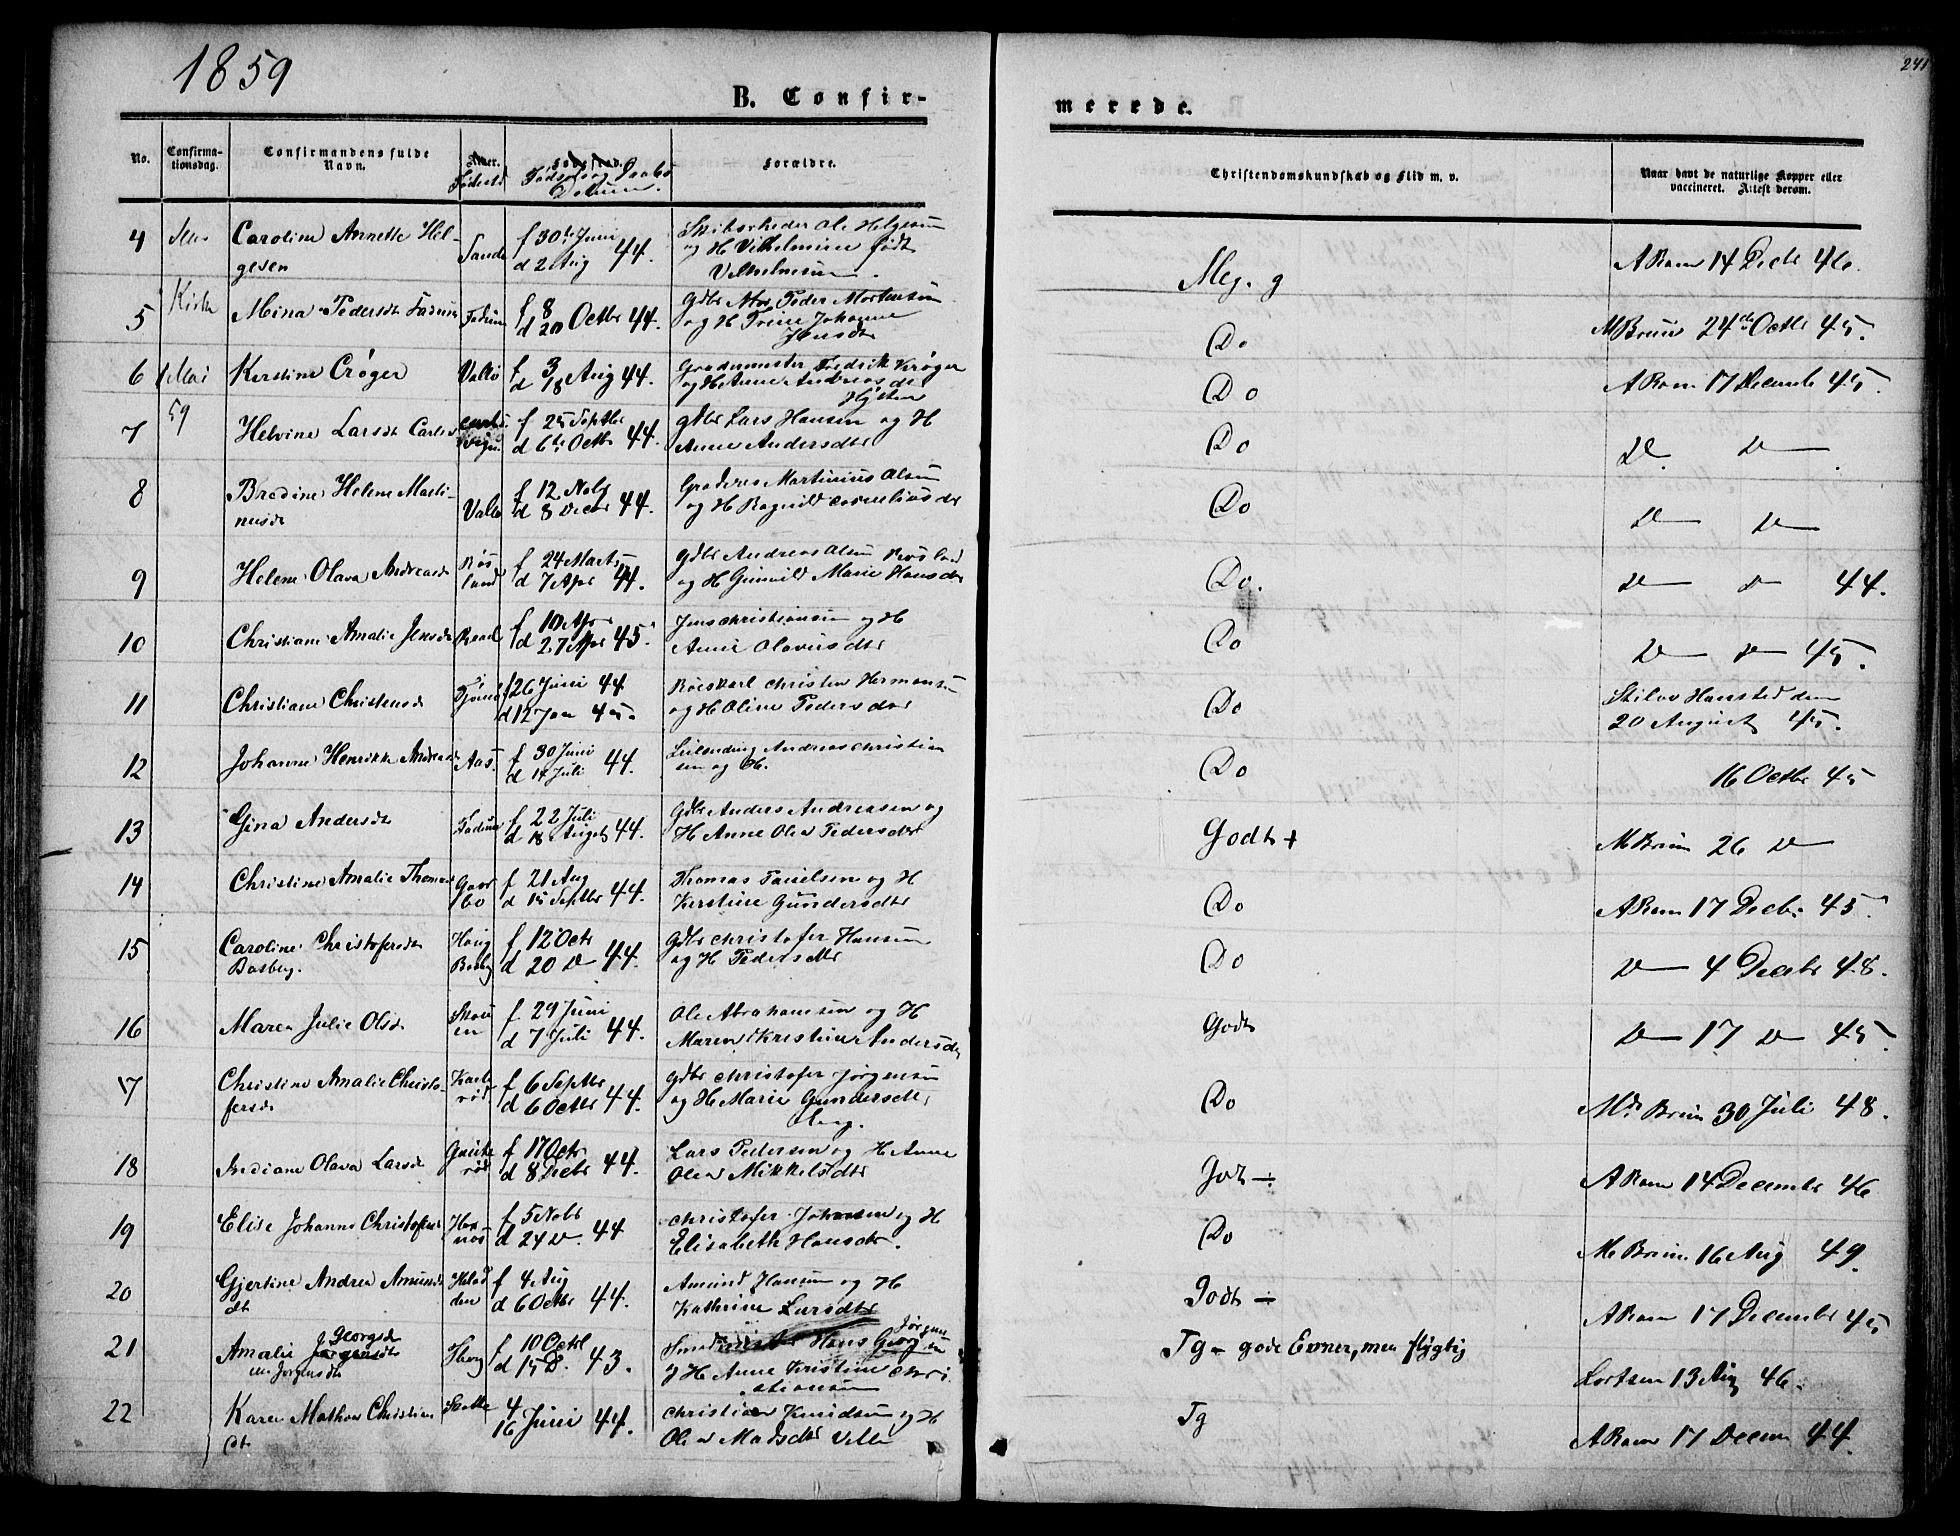 1859
241
B. Confir-
merede.
No.
Confirma-
tionsdag.
Confirmandens fulde
Navn.
Alder.
Fødested
Fødested.
Fødsels og Daabs
Datum.
Forældre.
Christendomskundskab og Flid m. v.
Naar havt de naturlige Kopper eller
vaccineret. Attest derom.
4 Caroline Annette Hel-
gesen Sande f 30te Juni
d 2 Aug 44. Skibsrheder Ole Helgesen
og H Vilhelmine født
Vilhelmsen. Meg. g ARoem 14 Decbr 46.
Kirke
5 Mina Pedersdt Fadum Fadum f 8
d 20 Octbr 44. Gdbr Peder Mortensen
og H Trine Johanne
Hansdtr Do MBruun 24de Octbr 45.
6 Mai Kerstine Crøger Vallø f 3
d 18 Aug 44. Fredrik Krøger
og H Anne Andreasdt
Do ARoem 17 Decemb 45.
59
7 Helvine Larsdt f 25 Septbr
d 6te Octbr 44. gdbr Lars Hansen og H
Anne Andersdtr Do D D
8 Bredine Helene Marti-
nusdt Vallø f 12 Nobr
d 8 Decbr 44. Martinius Olsen
og H Ragnild Corneliusdtr Do D D
9 Helene Olava Andreasdt Røs
land f 24 Marts
d 7 Apr 44. Gdbr Andreas Olsen Røsland
og H Gunild Marie Hansdtr Do. D D 44.
10 Christiane Amalie Jensdt f 10 Apr
d 27 Apr 45. Jens Christiansen og H
Anne Olavusdtr Do D D 45.
11 Christiane Christensdt f 26 Juni 44
d 12 Jan 45. Christen Hermansen
og H Oline Pedersdtr Do Hansted den
20 August 45.
12 Johanne Henrikke Andreasdt Aas. f 30 Juni
d 14 Juli 44. Leilending Andreas Christian
sen og H. Do 16 Octbr 45
13 Gina Andersdt Fadum f 22 Juli
d 18 August 44. Gdbr Anders Andreasen og
H Anne Olea Pedersdtr Godt + MBruun 26 D
14 Christine Amalie Thomasdt Gaar
bo f 21 Aug
d 15 Septbr 44. Thomas Paulsen og H
Kerstine Gundersdtr Do ARoem 17 Decbr 45.
15 Caroline Christofersdt
Basberg. Haug
Basbg f 12 Octr
d 20 D 44. Gdbr Christofer Hansen
og H Pedersdtr Do D 4 Decbr 48.
16 Maren Julie Olsdt Skou
en f 29 Juni
d 7 Juli 44. Ole Abrahamsen og H
Maren Kristine Andersdtr Godt D 17 D 45.
17 Christine Amalie Christo-
fersdt Karls
rød f 6 Septbr
d 6 Octbr 44. Gdbr Christofer Jørgensen
og H Marie Gundersdtr
Do Mr. Bruun 30 Juli 48.
18 Indiane Olava Larsdt f 17 Octr
d 8 Decbr 44. Lars Pedersen og H Anne
Olea Mikkelsdtr Godt ÷ ARoem 14 December 46
19 Elise Johanne Christofersdt f 5 Nobr
d 24 D. 44 Christofer Johnsen og H
Elisabeth Hansdtr. Do MBruun 16 Aug 49.
20 Gjertine Andrea Amunds
dt f 4 Aug
d 6 Octbr 44. Amund Hansen og H
Kathrine Larsdtr Godt ÷ ARoem 17 December 45
21 Amalie Georgsdt
Jørgensdt f 10 Octbr
d 15 D. 43. Hans Georg Jørgensen
og H Anne Kristine Chri
stiansen Tg – gode Evner, men flygtig Lortsen 13 Aug 46.
22 Karen Mathea Christian
dt 4
16 Juni 44. Christian Knudsen og H
Olea Madsdtr Tg ARoem 17 Decem 44.